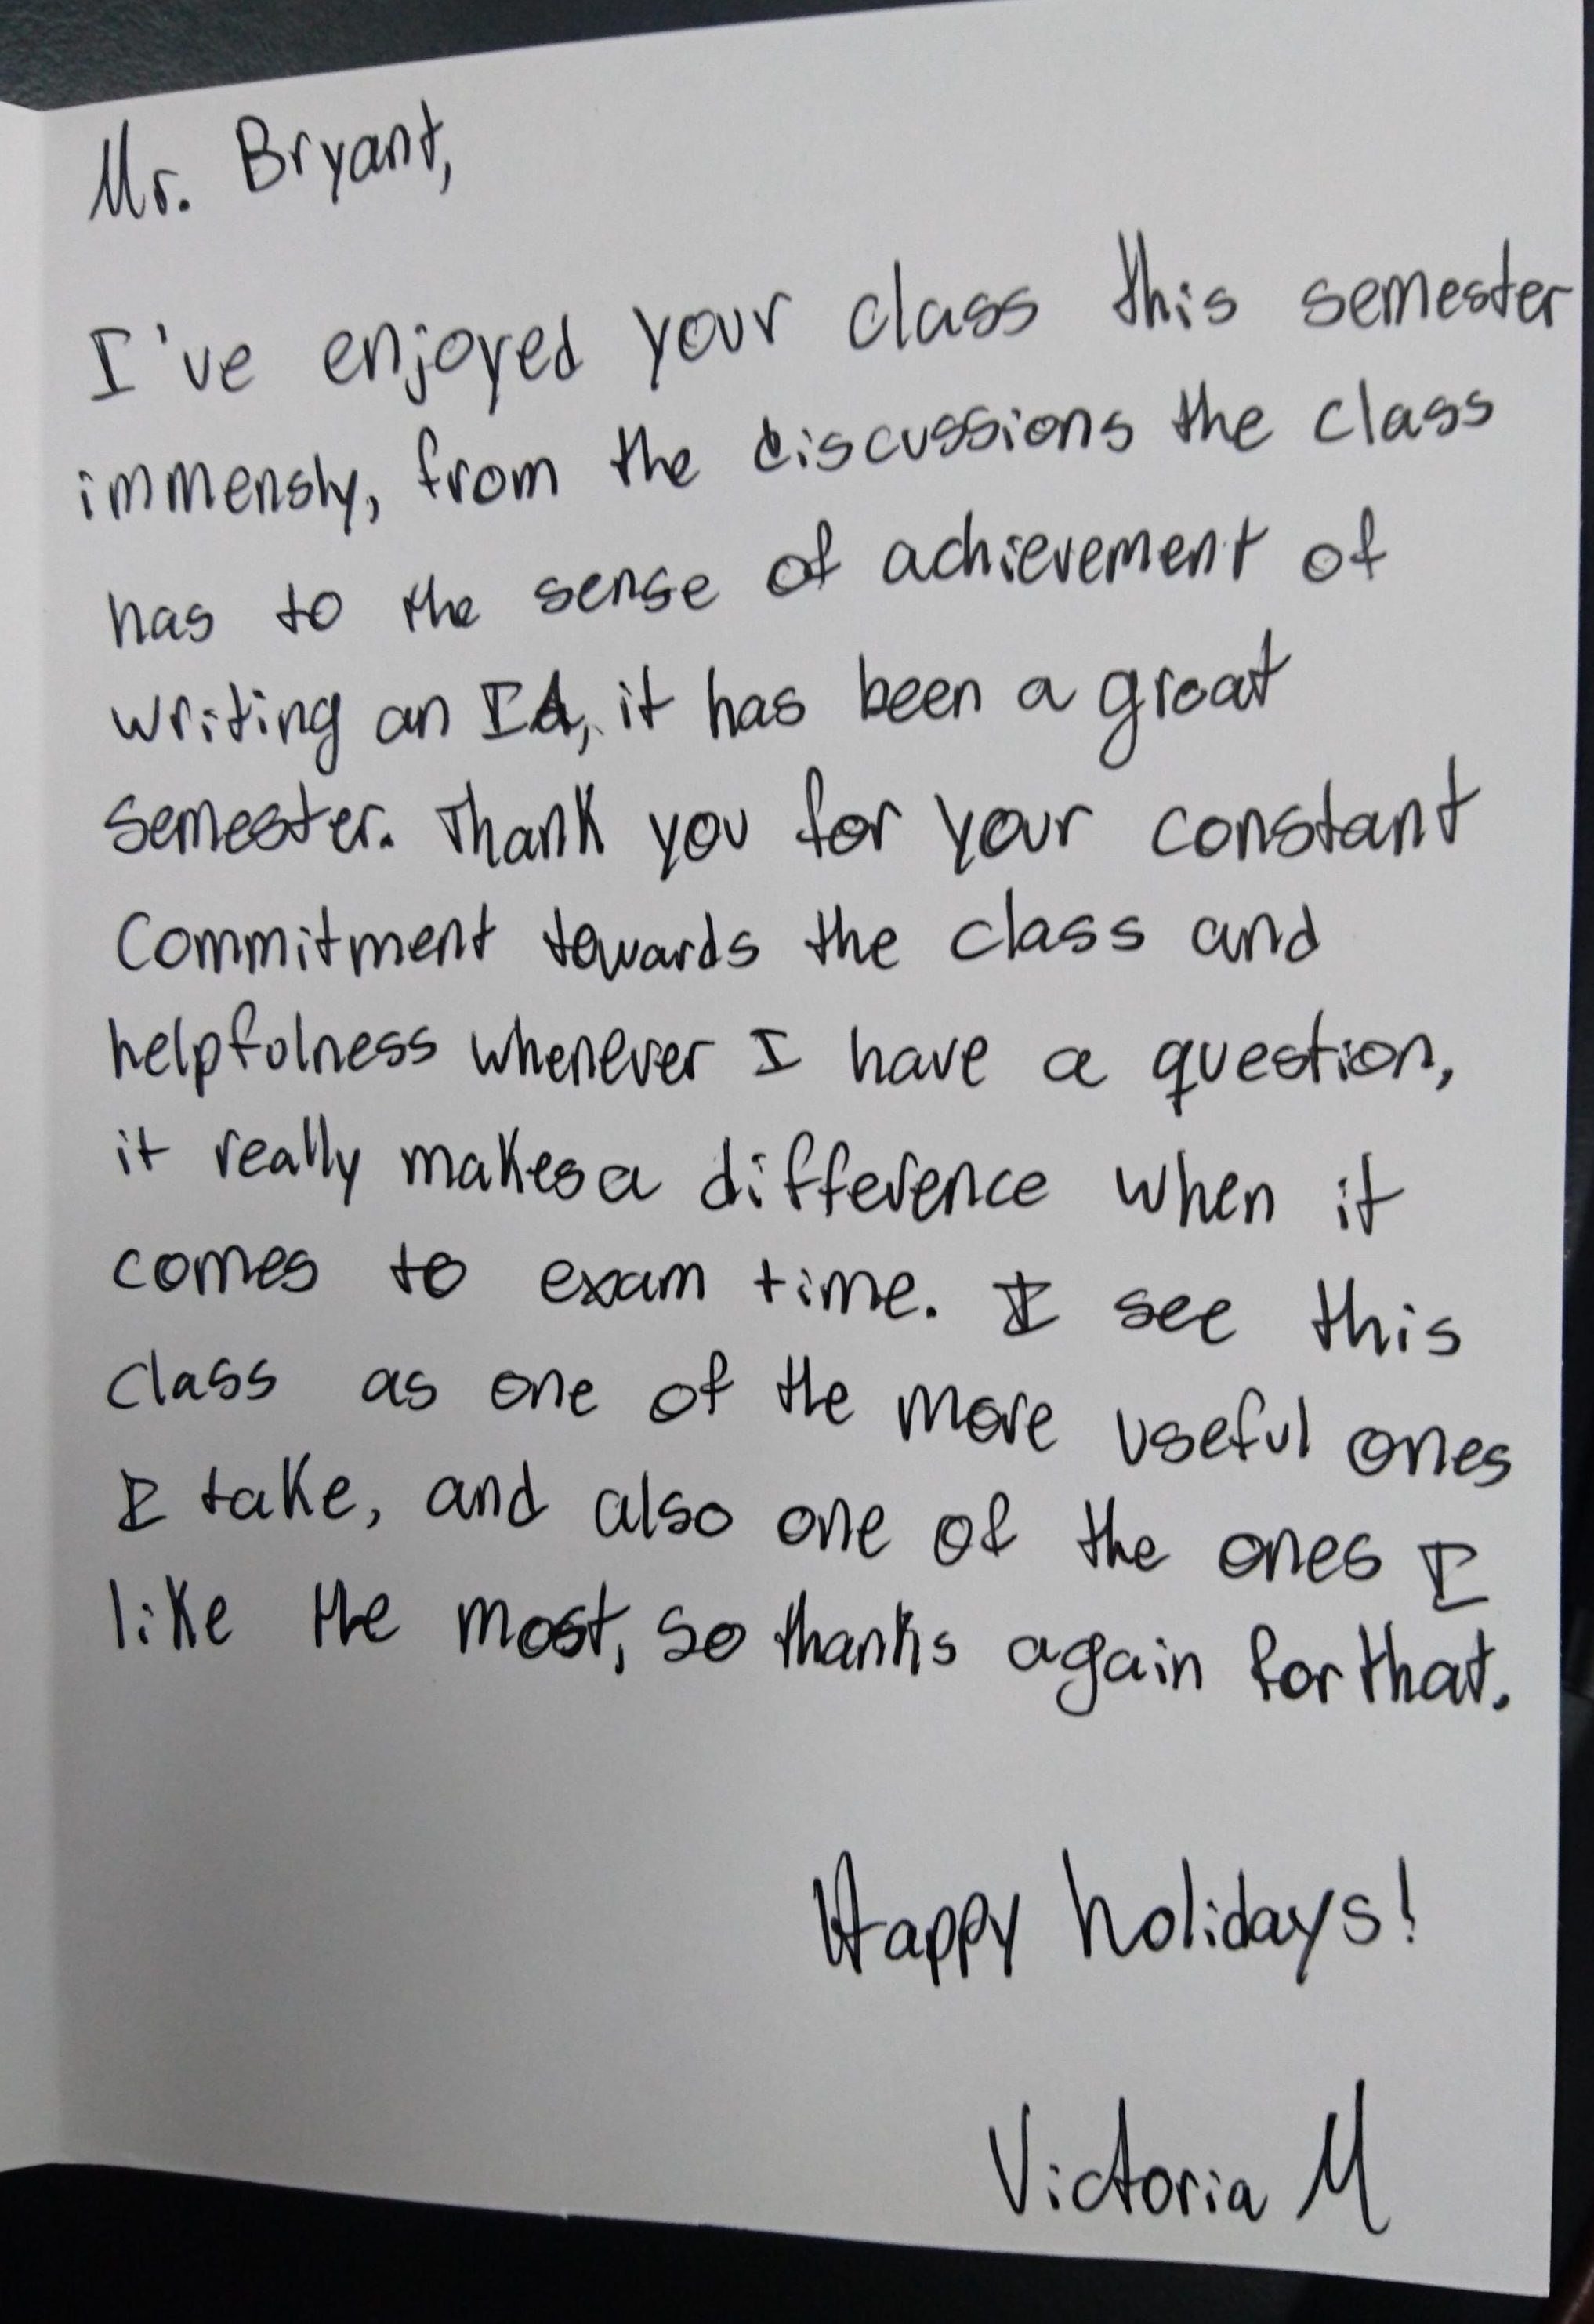 Mr. Bryant,
I've enjoyed your class this semester
immensly, from the discussions the class
has to the sense of achievement of
writing an IA, it has been a great
semester. Thank you for your constant
commitment towards the class and
helpfulness whenever I have a question,
it really makes a difference when it
comes to exam time. I see this
class as one of the more useful ones
I take, and also one of the ones I
like the most, so thanks again for that.
Happy holidays!
Victoria M